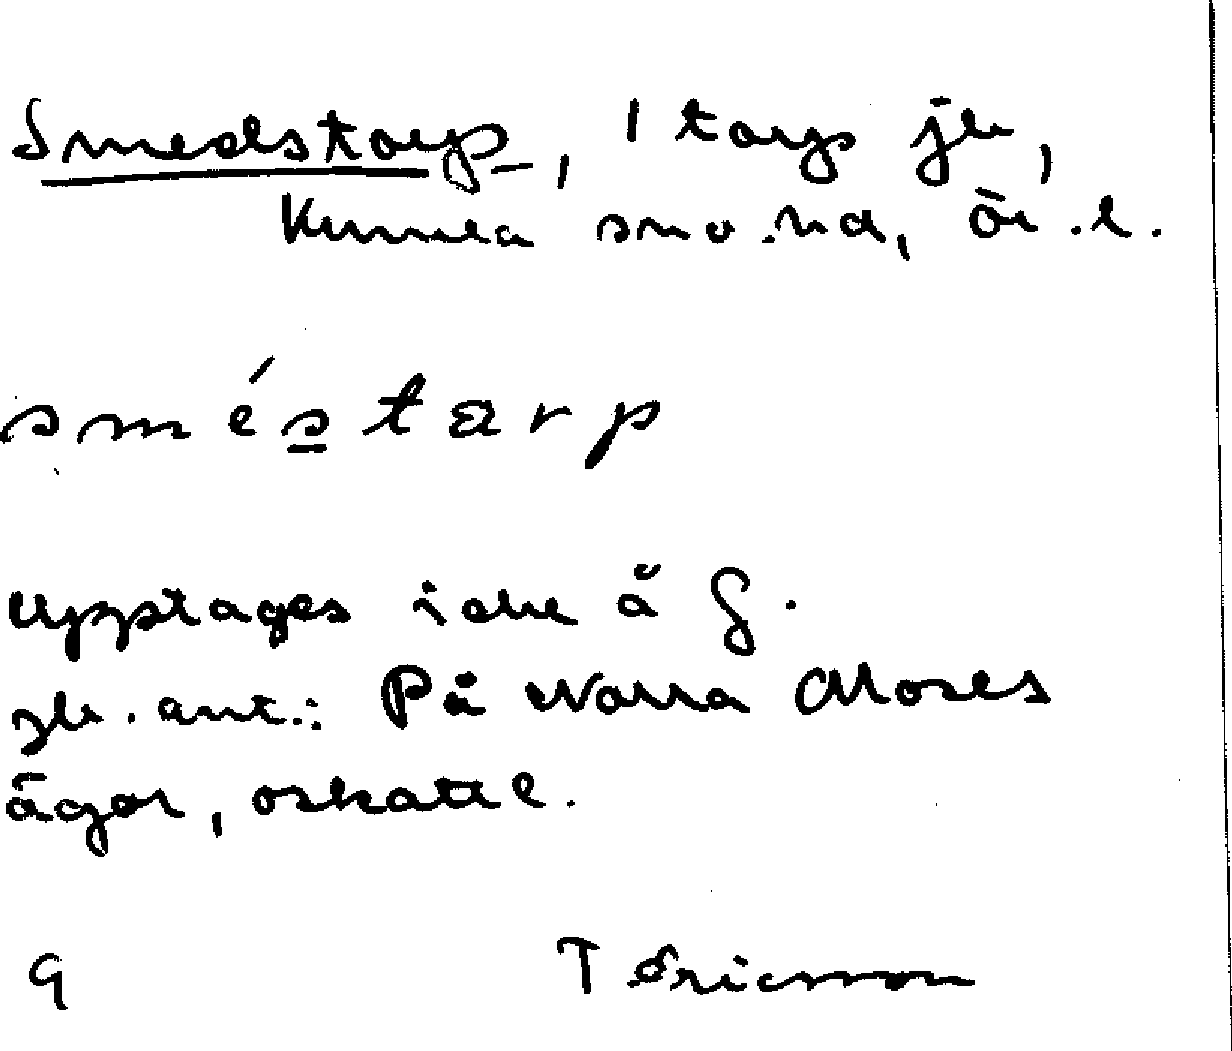 Smedstorp, 1 torp jb,
Kumla snv.nd, Ör.l.
sméstarp
Upptages icke å G.
jb.ant.: På Norra Moses
ägor, oskattl.
9 T Ericsson